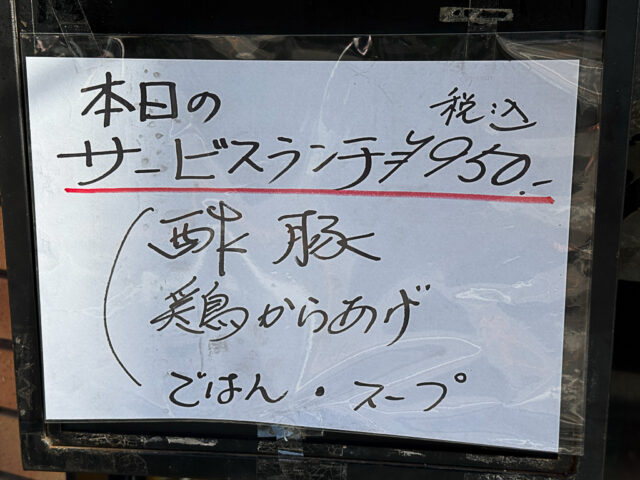 本日の
税込
サービスランチ ¥950.-
酢豚
鶏からあげ
ごはん・スープ